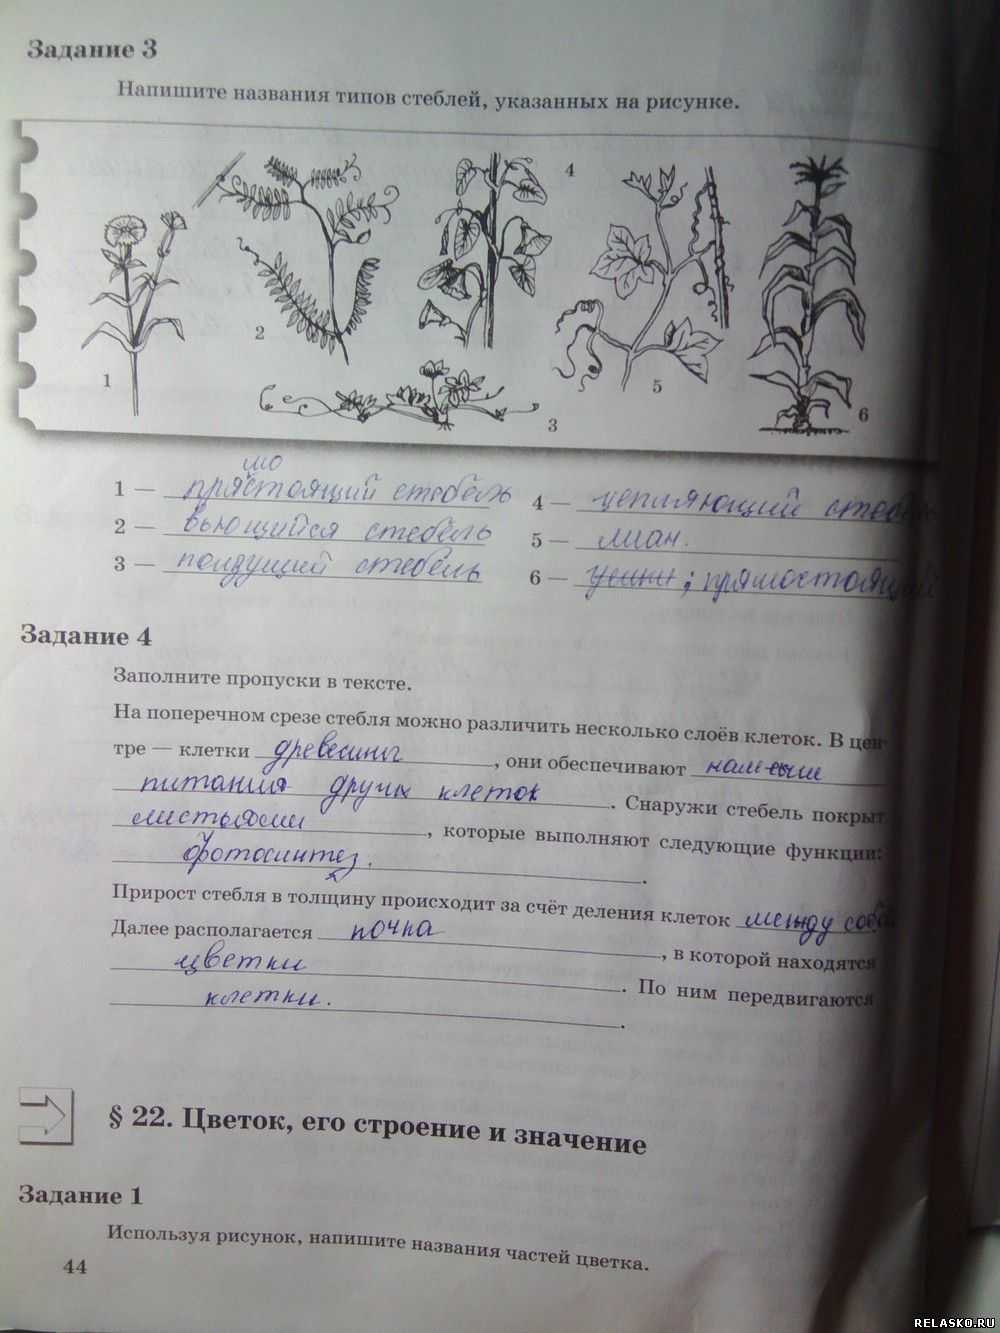 Задание 3
Напишите названия типов стеблей, указанных на рисунке.
1
2
3
4
5
6
мо
1 — прястоящий стебель
2 — вьющийся стебель
3 — ползущий стебель
4 — цепляющий стебель
5 — лиан.
6 — ; прямостоящий
Задание 4
Заполните пропуски в тексте.
На поперечном срезе стебля можно различить несколько слоёв клеток. В цен-
тре — клетки древесины, они обеспечивают
питания других клеток. Снаружи стебель покрыт
листьями, которые выполняют следующие функции:
фотосинтез.
Прирост стебля в толщину происходит за счёт деления клеток между собой
Далее располагается почка, в которой находятся
цветки. По ним передвигаются
клетки.
§ 22. Цветок, его строение и значение
Задание 1
Используя рисунок, напишите названия частей цветка.
44
RELASKO.RU